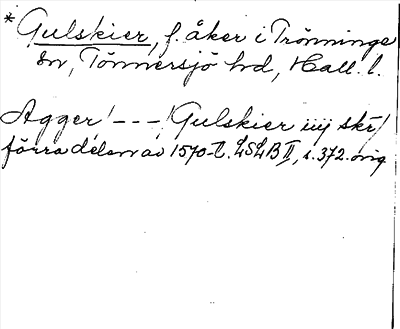 * Gulskier, f. åker i Trönninge
sn, Tönnersjö hd, Hall. l.
Agger! - - -! Gulskier iiij skr!
förra delen av 1570-t. LSLB II, s. 372. orig